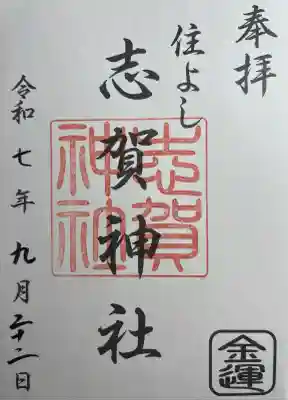 奉拝
住よし
志賀神社
志賀神社
令和七年九月二十二日
金運